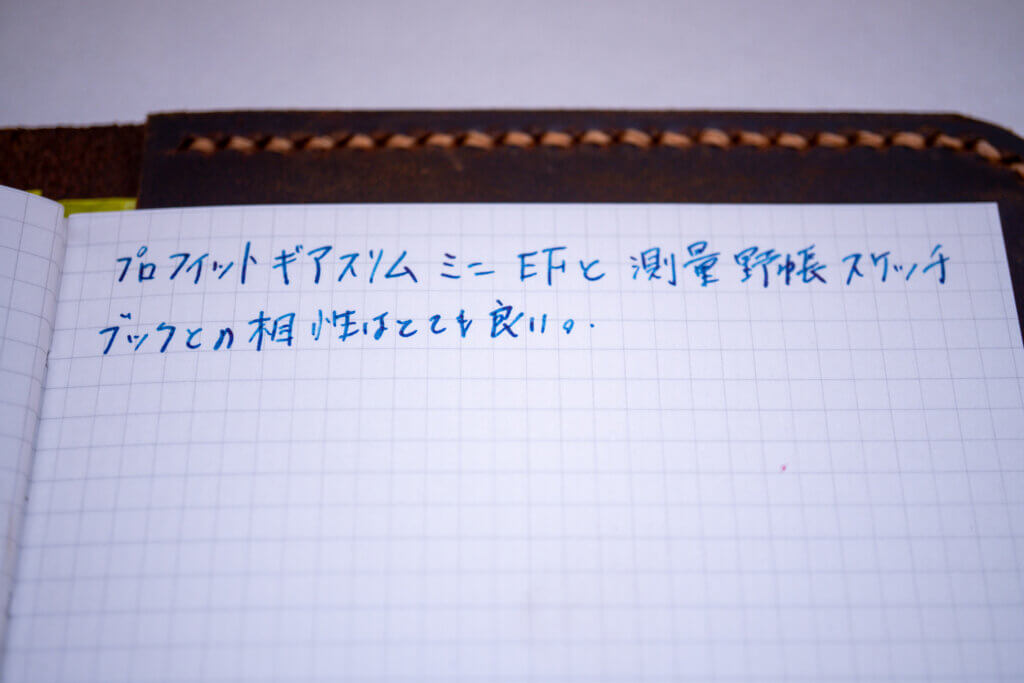 プロフィットギアスリムミニ EFと測量野帳スケッチ
ブックとの相性はとても良い。